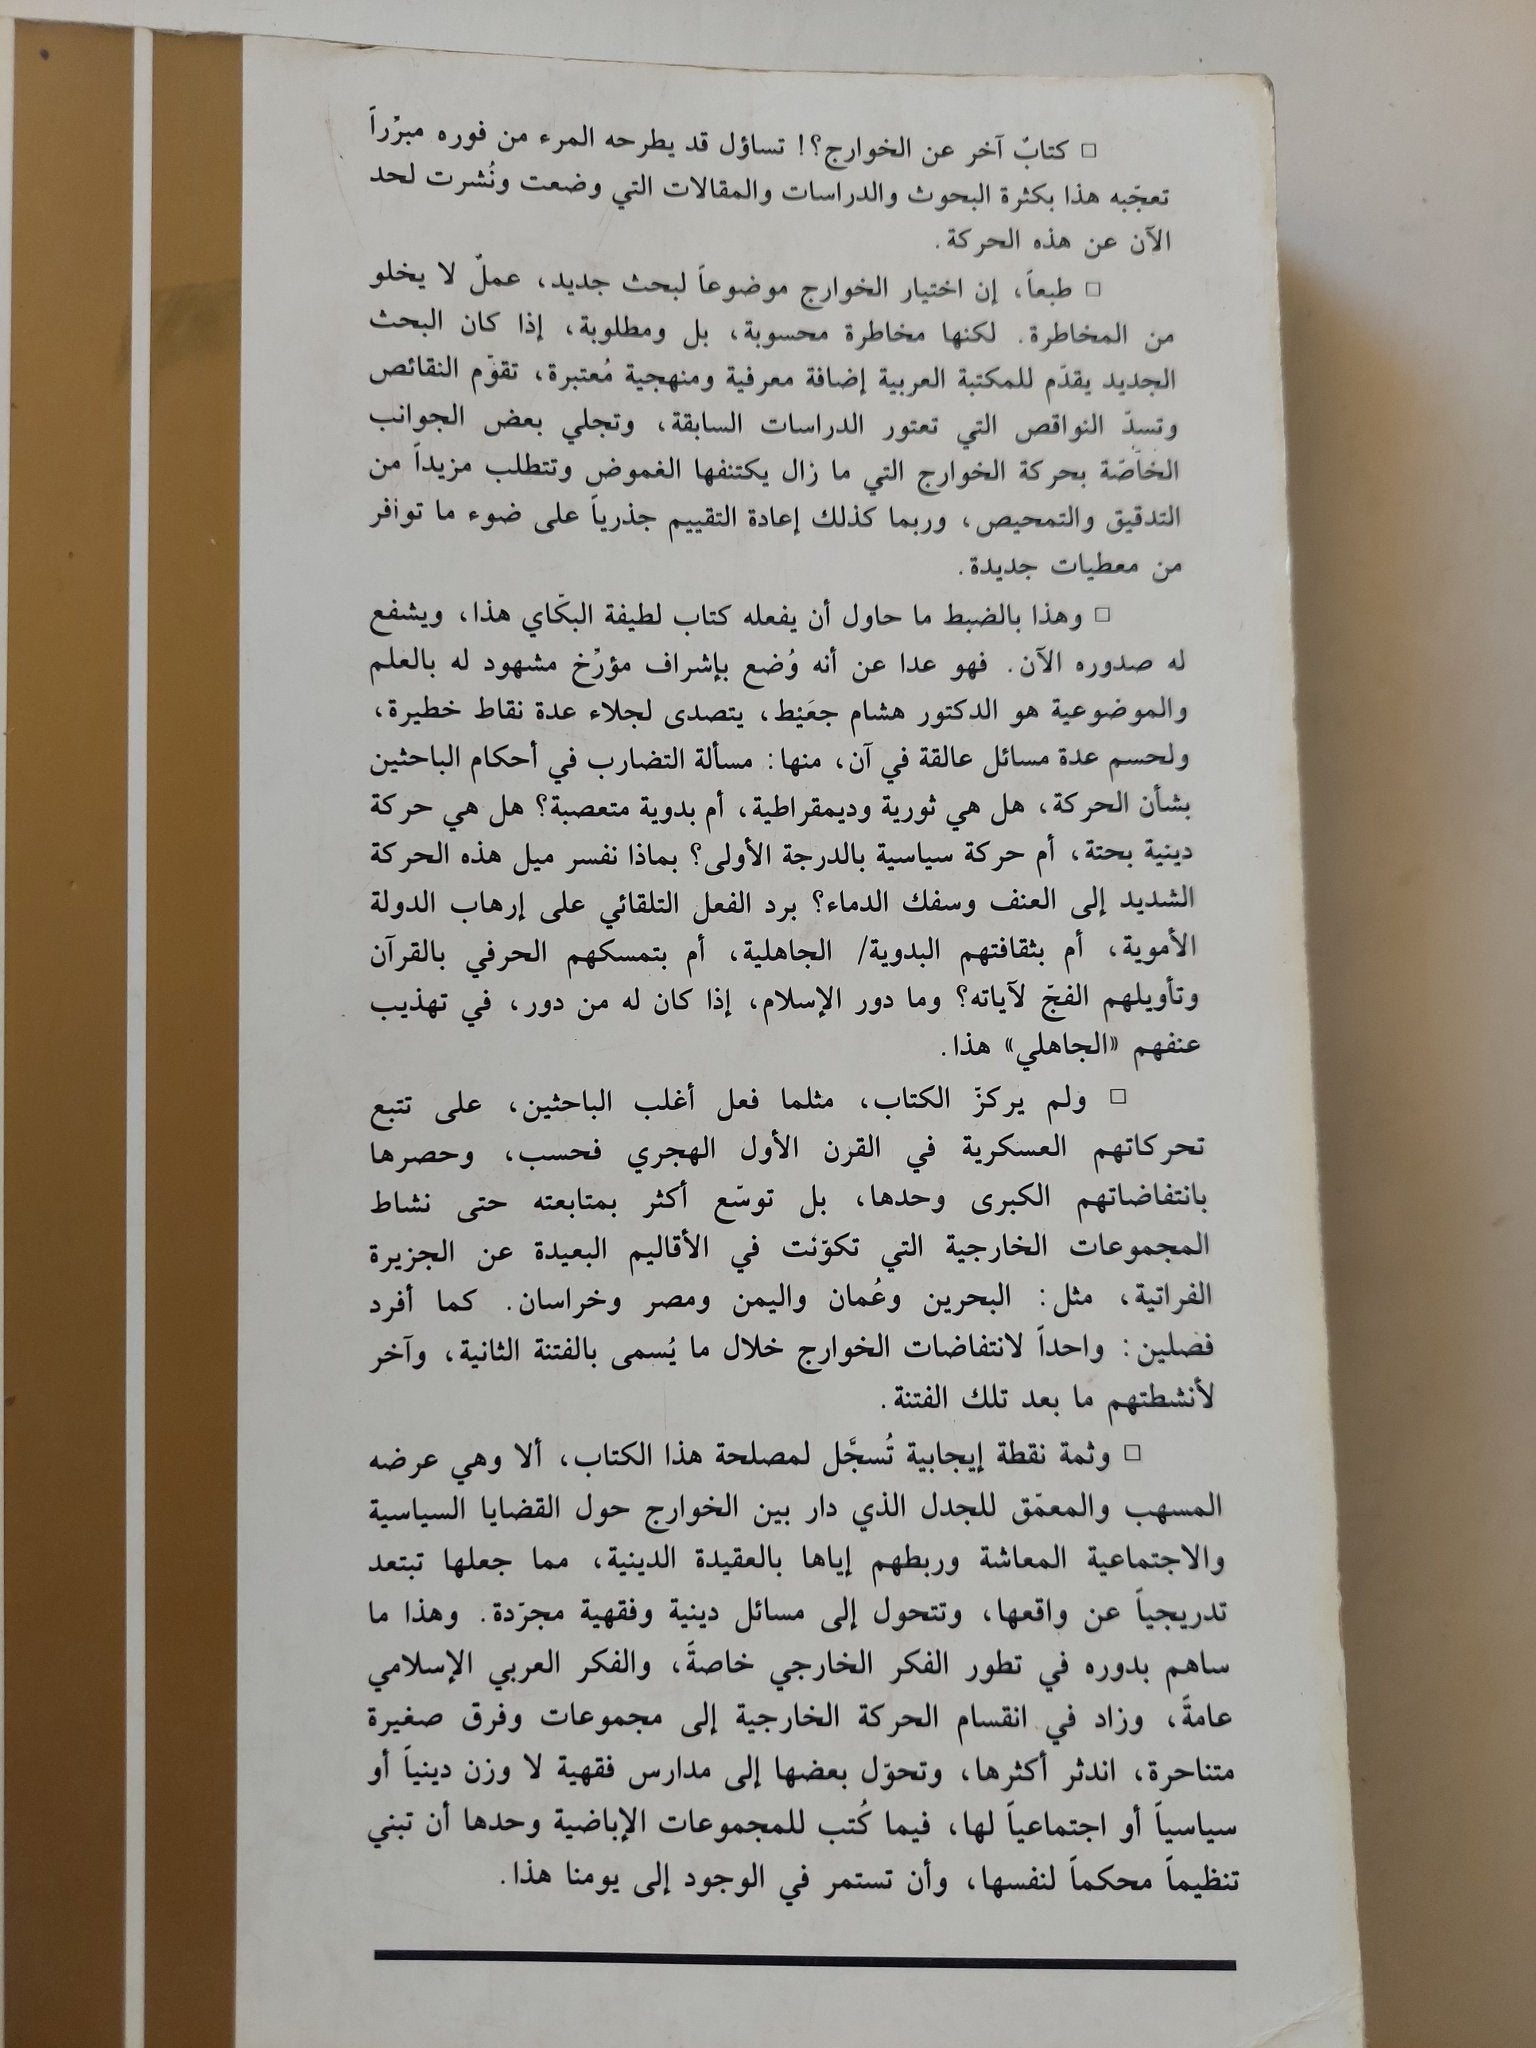 □ كتابٌ آخر عن الخوارج؟! تساؤل قد يطرحه المرء من فوره مبرّراً
تعجّبه هذا بكثرة البحوث والدراسات والمقالات التي وضعت ونُشرت لحد
الآن عن هذه الحركة.
□ طبعاً، إن اختيار الخوارج موضوعاً لبحث جديد، عملٌ لا يخلو
من المخاطرة. لكنها مخاطرة محسوبة، بل ومطلوبة، إذا كان البحث
الجديد يقدّم للمكتبة العربية إضافة معرفية ومنهجية مُعتبرة، تقوّم النقائص
وتسدّ النواقص التي تعتور الدراسات السابقة، وتجلي بعض الجوانب
الخاصّة بحركة الخوارج التي ما زال يكتنفها الغموض وتتطلب مزيداً من
التدقيق والتمحيص، وربما كذلك إعادة التقييم جذرياً على ضوء ما توافر
من معطيات جديدة.
□ وهذا بالضبط ما حاول أن يفعله كتاب لطيفة البكّاي هذا، ويشفع
له صدوره الآن. فهو عدا عن أنه وُضع بإشراف مؤرّخ مشهود له بالعلم
والموضوعية هو الدكتور هشام جعَيْط، يتصدى لجلاء عدة نقاط خطيرة،
ولحسم عدة مسائل عالقة في آن، منها: مسألة التضارب في أحكام الباحثين
بشأن الحركة، هل هي ثورية وديمقراطية، أم بدوية متعصبة؟ هل هي حركة
دينية بحتة، أم حركة سياسية بالدرجة الأولى؟ بماذا نفسر ميل هذه الحركة
الشديد إلى العنف وسفك الدماء؟ برد الفعل التلقائي على إرهاب الدولة
الأموية، أم بثقافتهم البدوية/ الجاهلية، أم بتمسكهم الحرفي بالقرآن
وتأويلهم الفجّ لآياته؟ وما دور الإسلام، إذا كان له من دور، في تهذيب
عنفهم «الجاهلي» هذا.
□ ولم يركزّ الكتاب، مثلما فعل أغلب الباحثين، على تتبع
تحركاتهم العسكرية في القرن الأول الهجري فحسب، وحصرها
بانتفاضاتهم الكبرى وحدها، بل توسّع أكثر بمتابعته حتى نشاط
المجموعات الخارجية التي تكوّنت في الأقاليم البعيدة عن الجزيرة
الفراتية، مثل: البحرين وعُمان واليمن ومصر وخراسان. كما أفرد
فصلين: واحداً لانتفاضات الخوارج خلال ما يُسمى بالفتنة الثانية، وآخر
لأنشطتهم ما بعد تلك الفتنة.
□ وثمة نقطة إيجابية تُسجَّل لمصلحة هذا الكتاب، ألا وهي عرضه
المسهب والمعمّق للجدل الذي دار بين الخوارج حول القضايا السياسية
والاجتماعية المعاشة وربطهم إياها بالعقيدة الدينية، مما جعلها تبتعد
تدريجياً عن واقعها، وتتحول إلى مسائل دينية وفقهية مجرّدة. وهذا ما
ساهم بدوره في تطور الفكر الخارجي خاصةً، والفكر العربي الإسلامي
عامةً، وزاد في انقسام الحركة الخارجية إلى مجموعات وفرق صغيرة
متناحرة، اندثر أكثرها، وتحوّل بعضها إلى مدارس فقهية لا وزن دينياً أو
سياسياً أو اجتماعياً لها، فيما كُتب للمجموعات الإباضية وحدها أن تبني
تنظيماً محكماً لنفسها، وأن تستمر في الوجود إلى يومنا هذا.